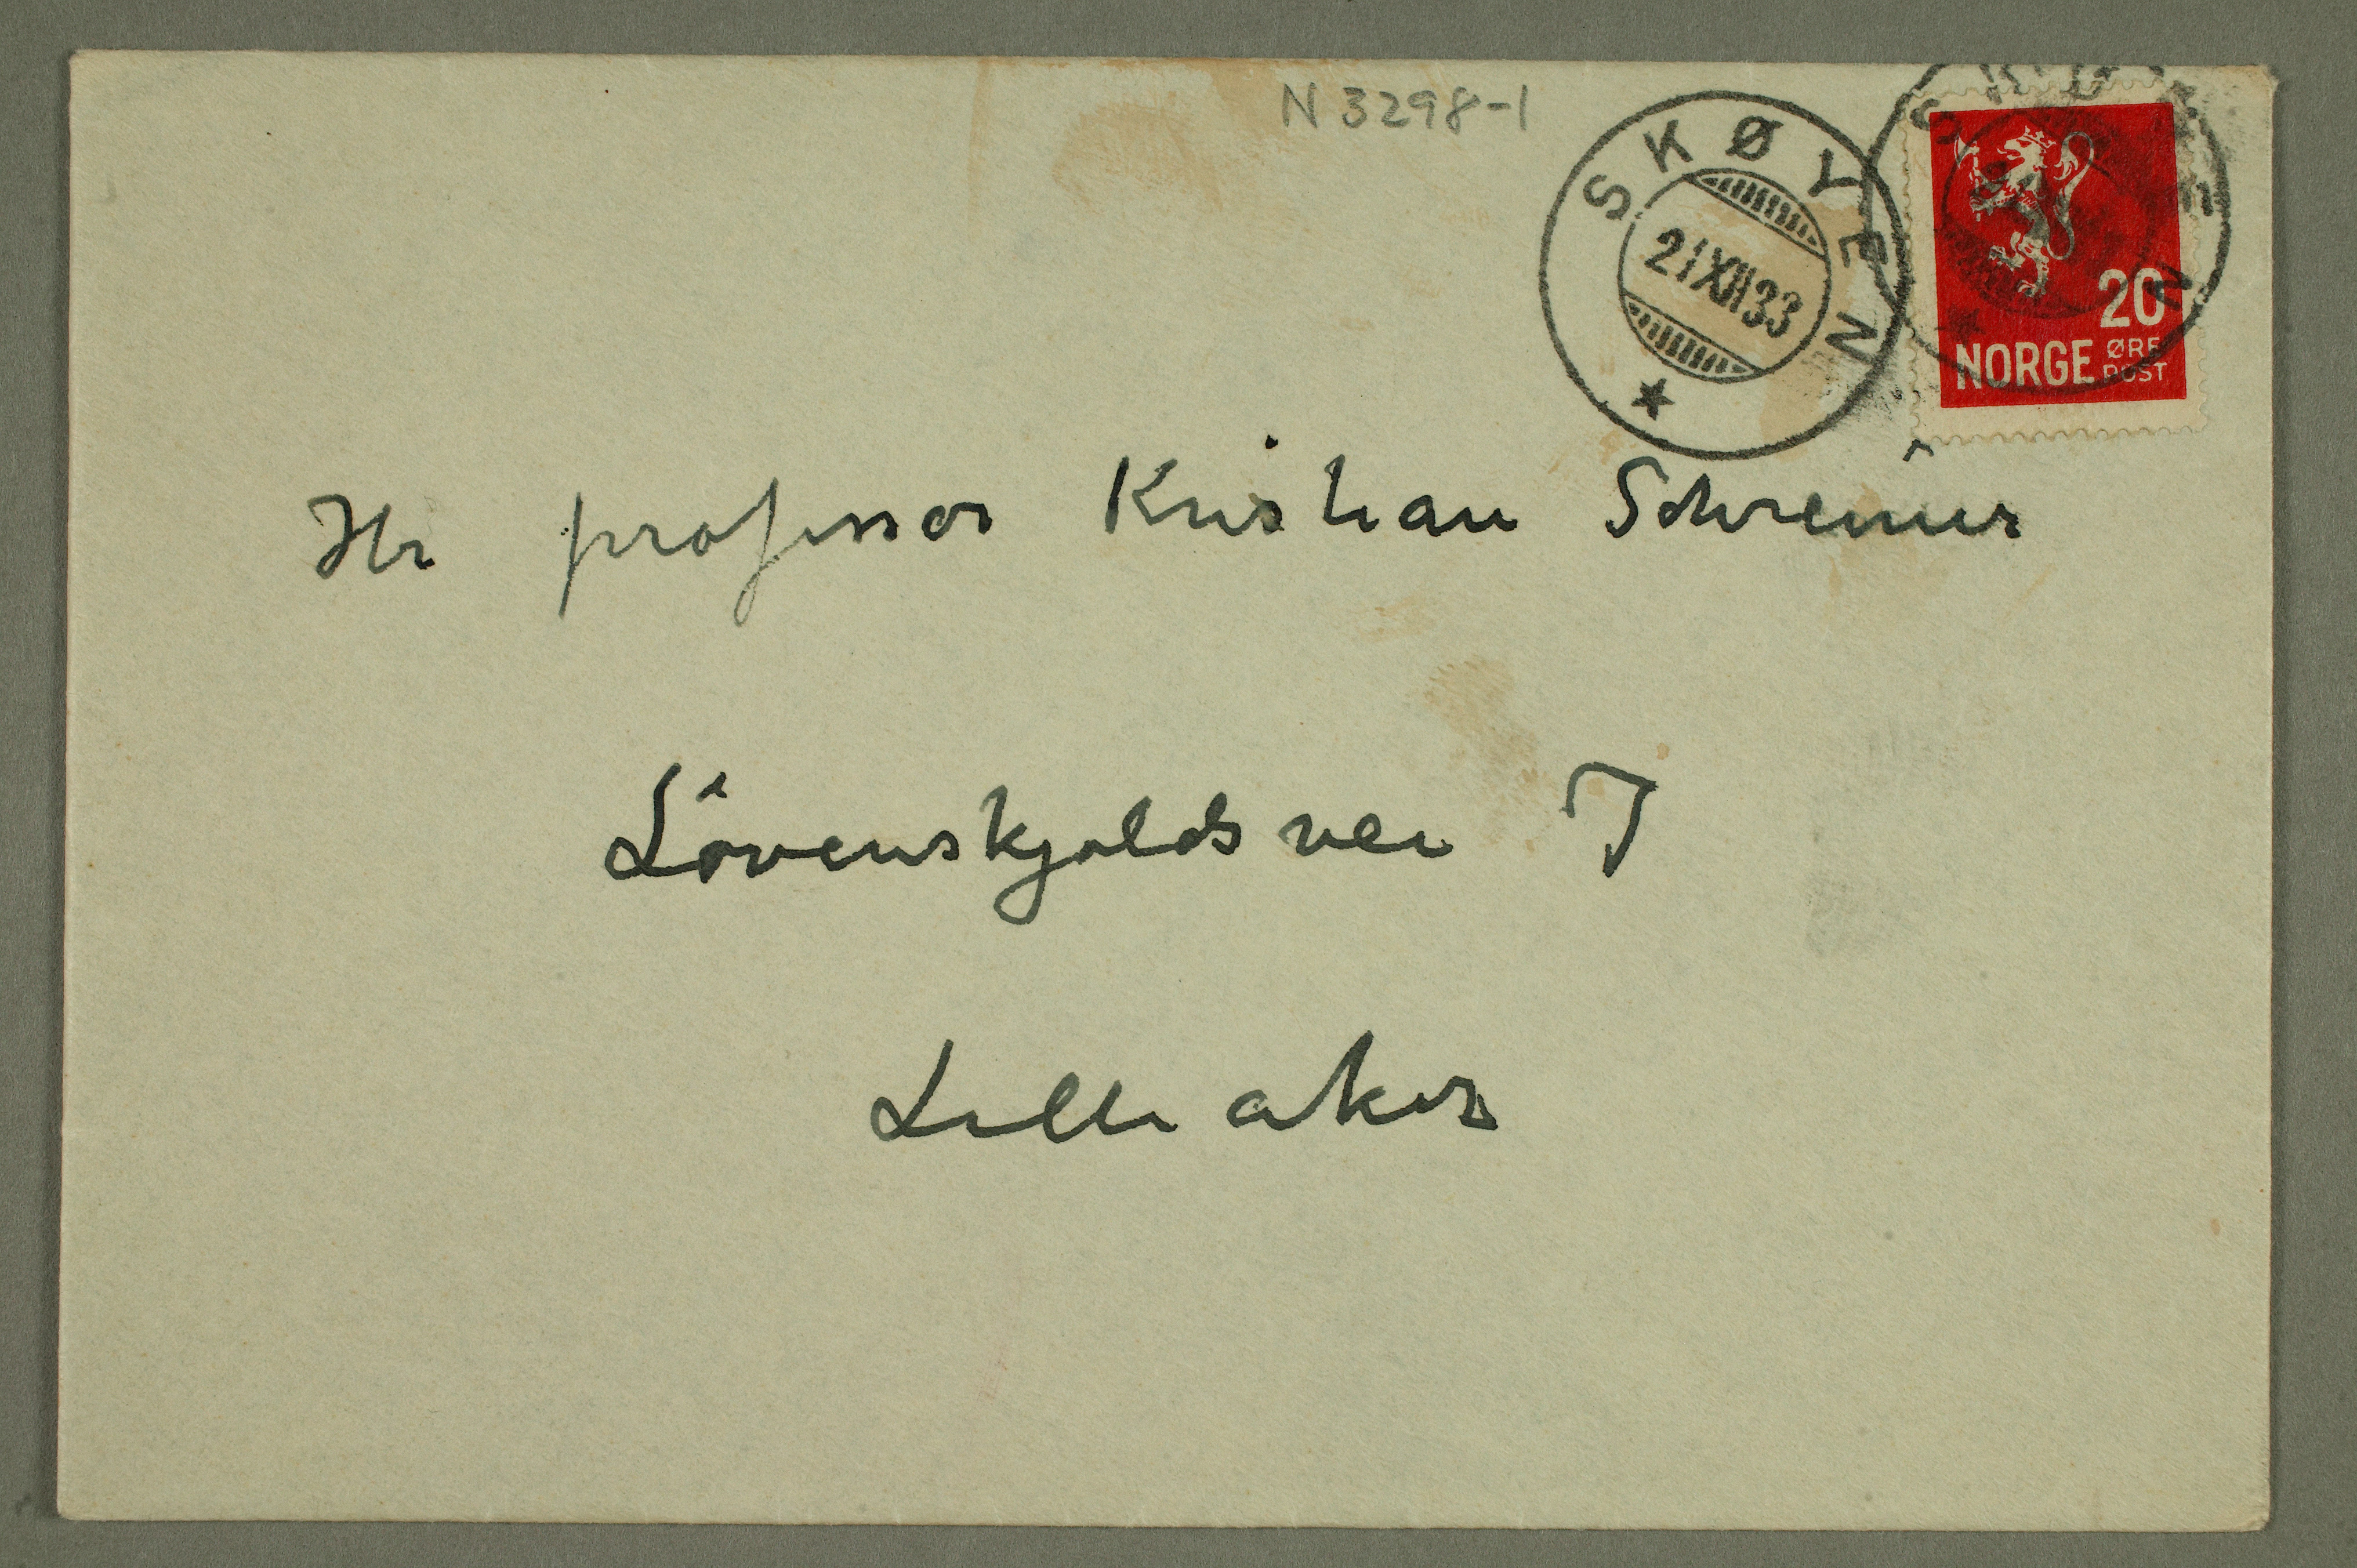 N 3298-1
SKØYEN
21 XII 33
SKØYEN
20
NORGE ØRE
POST
Hr professor Kristian Schreiner
Lövenskjoldsvei 7
Lilleaker